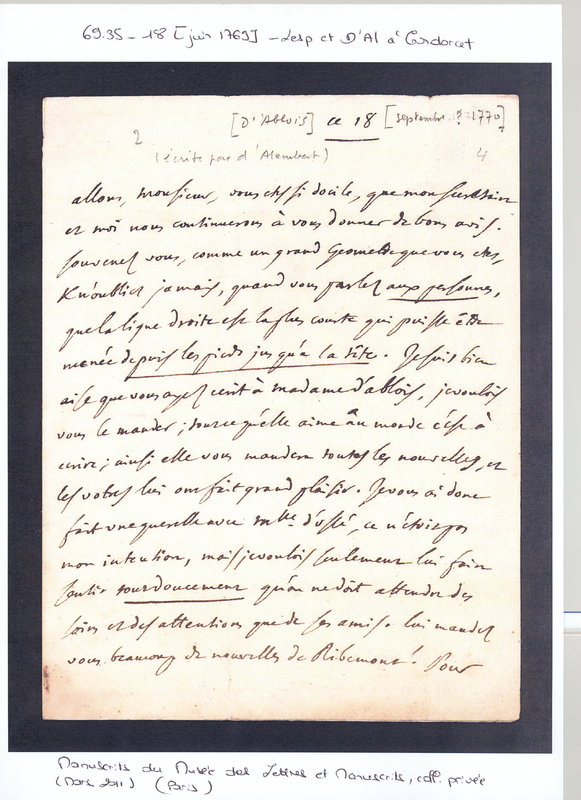 69.35 - 18 [juin 1769] - Lesp et D'Al à Condorcet
[D'Ablois] ce 18 [septembre ? 1770]
2
(écrite par d'Alembert)
4
allons, monsieur, vous etes si docile, que mon secretaire
et moi nous continuerons à vous donner de bons avis.
souvenez vous, comme un grand Geometre que vous etes,
& n'oubliez jamais, quand vous parlez aux personnes,
que la ligne droite est la plus courte qui puisse être
menée depuis les pieds jusqu'à la tête. Je suis bien
aise que vous ayez ecrit à madame d'ablois, je voulois
vous le mander ; tout ce qu'elle aime au monde c'est à
ecrire ; ainsi elle vous mandera toutes les nouvelles, et
les votres lui ont fait grand plaisir. Je vous ai donc
fait une querelle avec mlle d'ussé, ce n'étoit pas
mon intention, mais je voulois seulement lui faire
sentir tout doucement qu'on ne doit attendre des
soins et des attentions que de ses amis. lui mandez
vous beaucoup de nouvelles de Ribemont ? Pour
Manuscrits du Musée des Lettres et Manuscrits, coll. privée
(Mars 2011) (Paris)